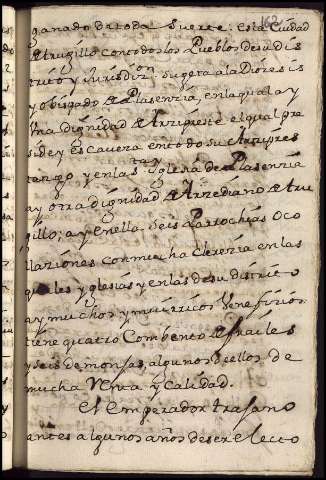 162
ganado de toda suerte. esta Ciudad
de trugillo con todos los Pueblos de su dis
trito y jurisdiⁿ. sugeta a la Diocesis
y obispado de Plasenzia, en la qual ay
Una dignidad de Arziprestre el qual pre
side y es caveza en todo su Arzipres
tazgo y en la sta Yglesia de Plasenzia
ay otra dignidad de Arzediano de tru
gillo; ay en ella seis Parrochias o co
llaziones con mucha clerezia en las
quales yglesias y en las de su districto
ay muchos y mui ricos Venefizios
tiene quatro Combentos de frailes
y seis de monjas, algunos de ellos de
mucha Renta y Calidad.
El Emperador trajano
antes algunos años de ser electo